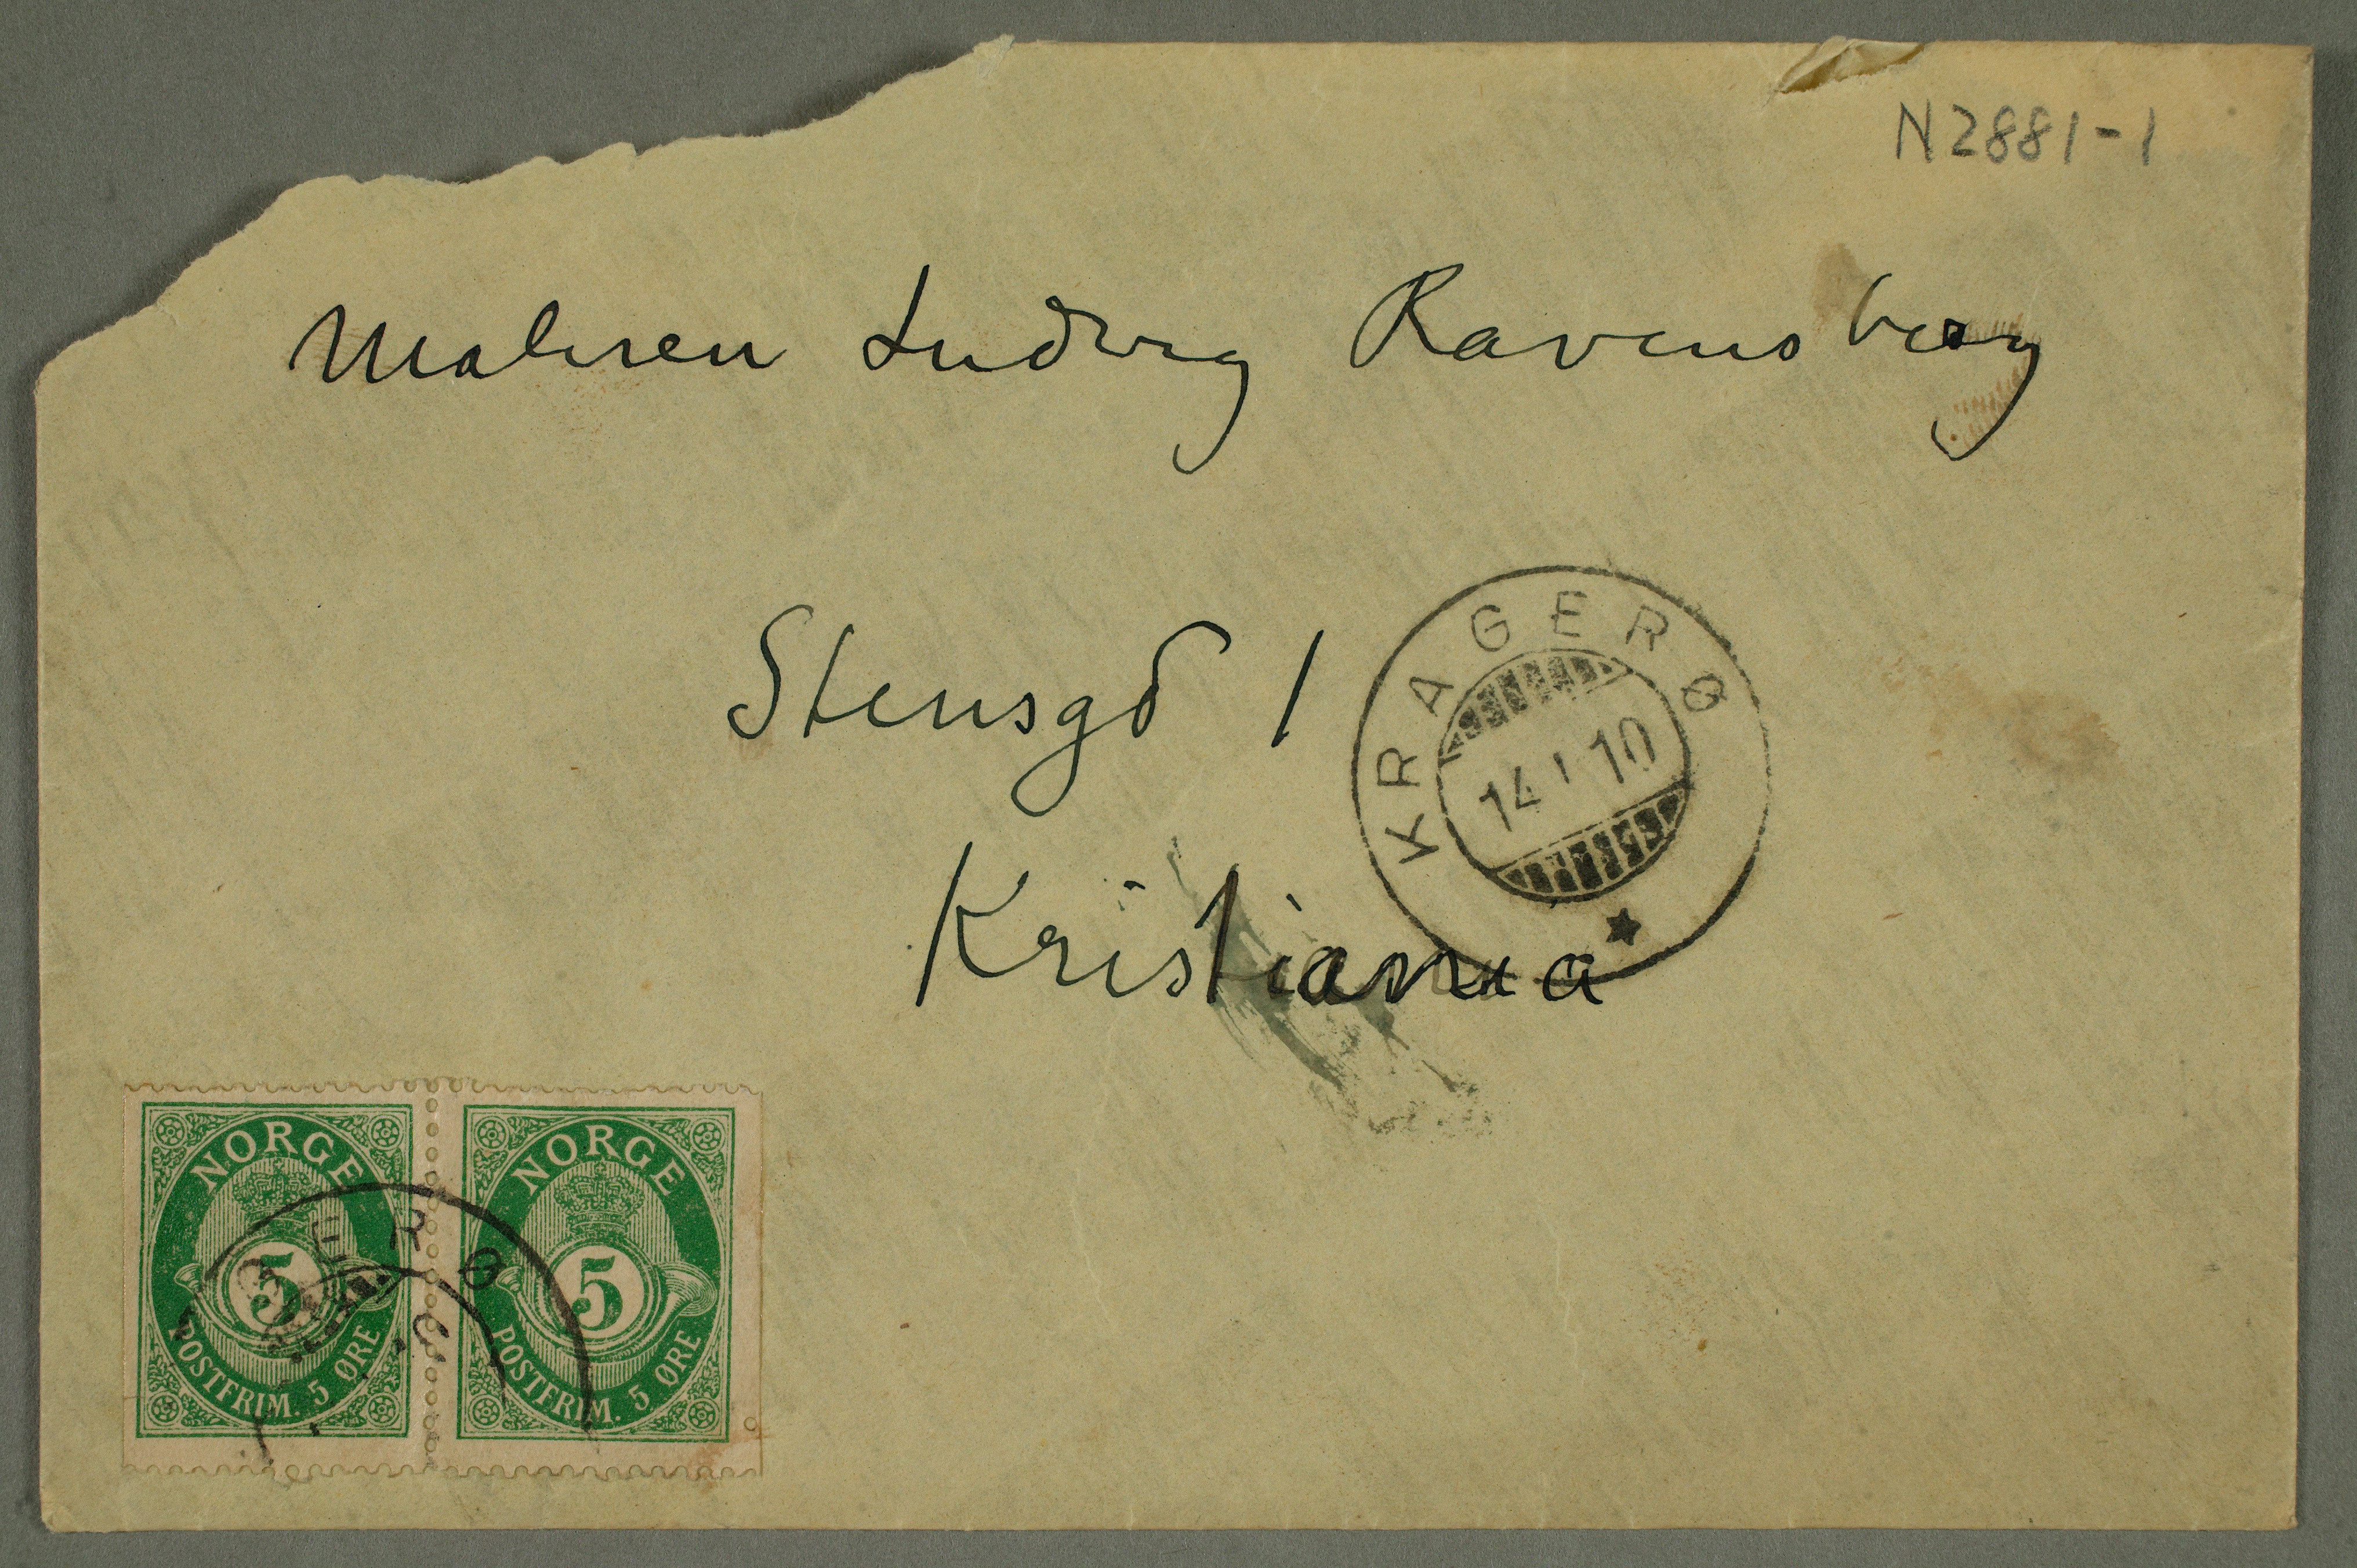 N2881-1
Maleren Ludvig Ravensberg
Stensgd 1
Kristiania
KRAGERØ
14 I 10
NORGE
5
POSTFRIM. 5 ØRE
NORGE
5
POSTFRIM. 5 ØRE
GERØ